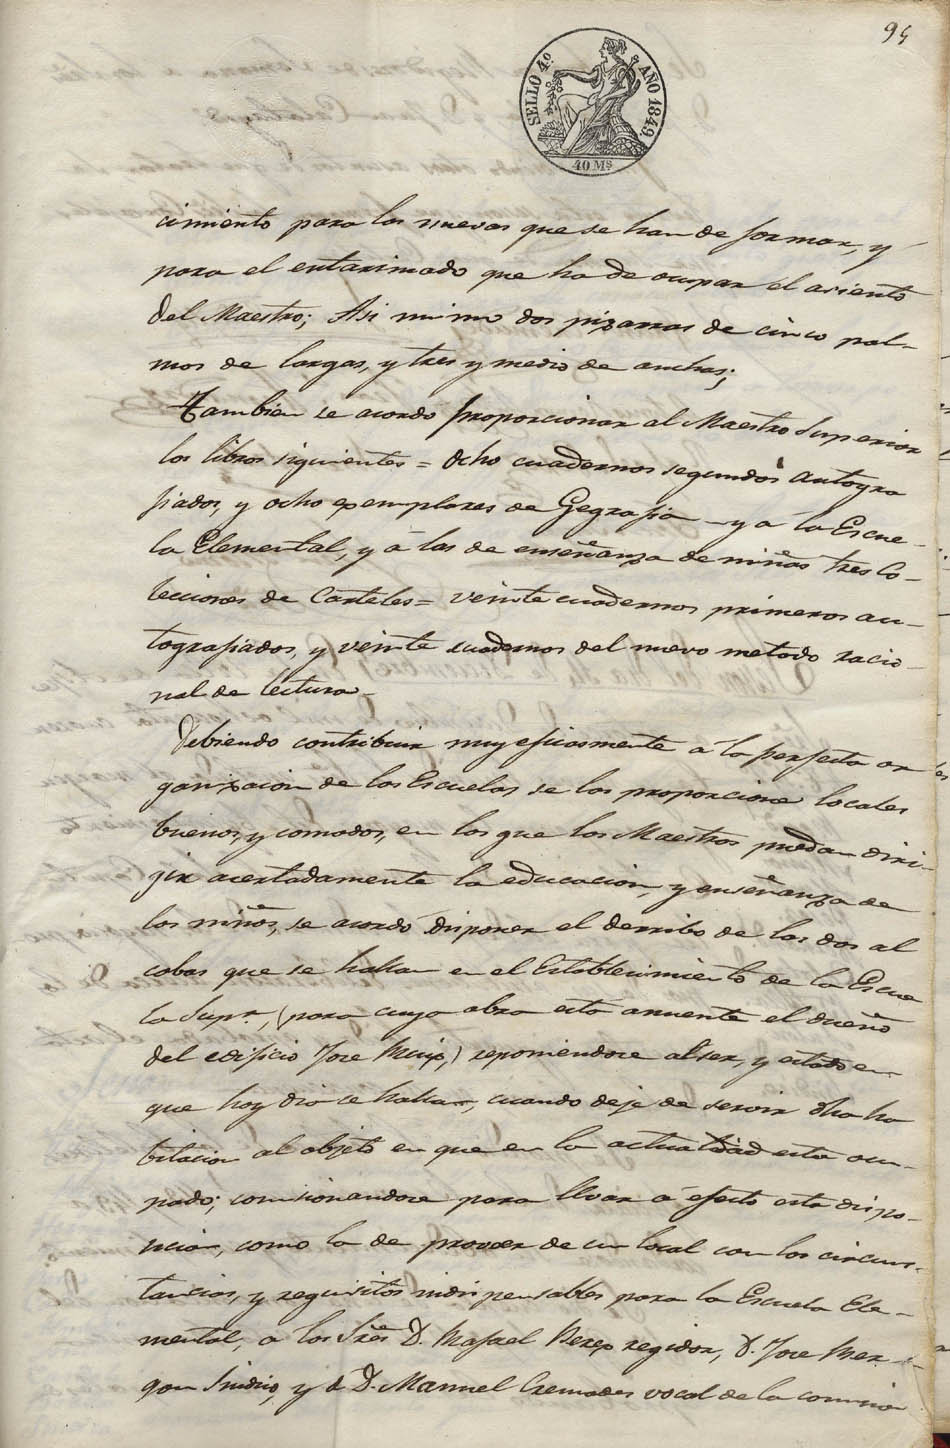 95
SELLO 4º AÑO 1849.
40 Ms
cimiento para las nuevas que se han de formar, y
para el entarimado que ha de ocupar el asiento
del Maestro; Asi mismo dos pizarras de cinco pal-
mos de largas, y tres y medio de anchas;
Tambien se acordo proporcionar al Maestro Superior
los libros siguientes = Ocho cuadernos segundos autogra
fiados, y ocho exemplares de Gegrafia - y a la Escue-
la Elemental, y á las de enseñanza de niñas tres Co-
lecciones de Carteles = veinte cuadernos primeros au-
tografiados, y veinte cuadernos del nuevo metodo racio-
nal de lectura -
Debiendo contribuir muy eficasmente a la perfecta or
ganizacion de las Escuelas se las proporcione locales
buenos, y comodos, en los que los Maestros puedan diri-
jir acertadamente la educacion, y enseñanza de
los niños, se acordó disponer el derribo de las dos al
cobas que se hallan en el Establecimiento de la Escue
la Supr., (para cuya obra esta anuente el dueño
del edificio Jose ) reponiendose al ser, y estado en
que hoy dia se hallan, cuando deje de servir dha ha
bitacion al objeto en que en la actualidad esta ocu-
pado; comisionandose para llvar á efecto esta dispo-
sicion, como la de proveer de un local con las circuns-
tancias, y requisitos indispensables para la Escuela Ele-
mental, a los Sres D. Rafael Perez regidor, D. Jose
 y á D. Manuel Cremades vocal de la comision